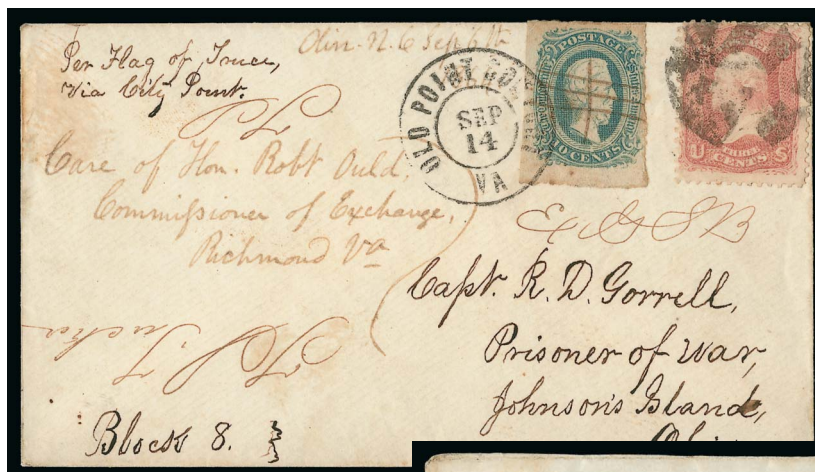 Per Flag of Truce,
via City Point.
OLD POINT CO
SEP
14
VA
POSTAGE
CENTS
THREE
U CENTS S
Care of Hon. Robt Ould,
Commissioner of Exchange,
Richmond Va
E, G S B
Capt. R. D. Gorrell,
Prisoner of War,
Johnson's Island,
Ohio
Block 8.